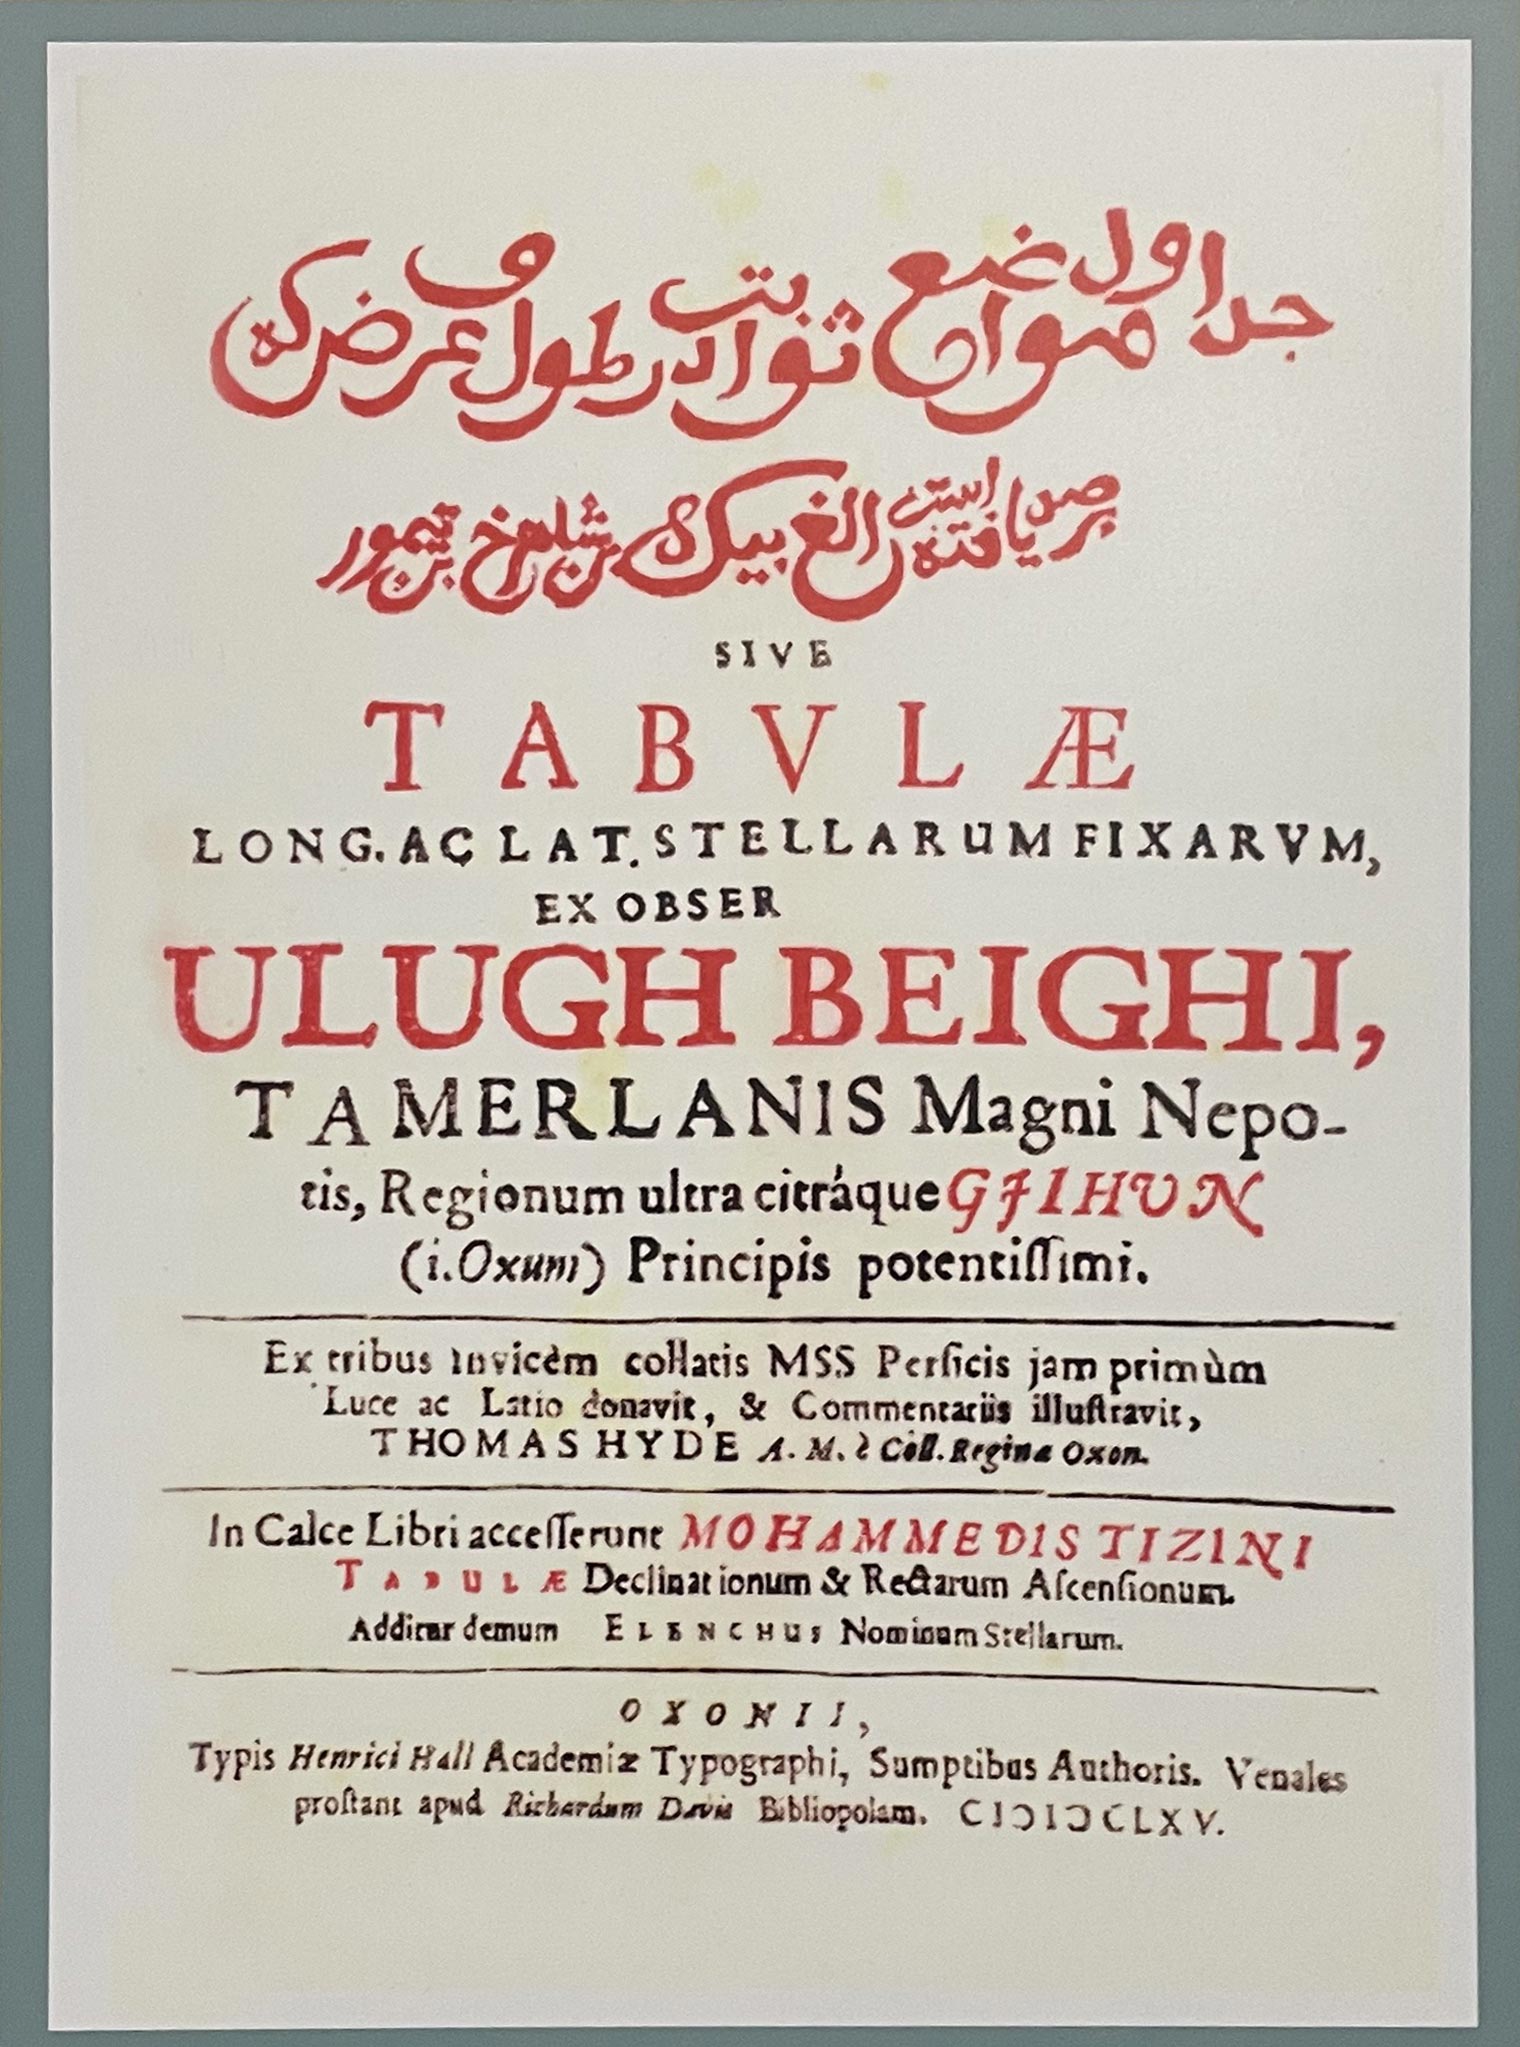 جداول مواضع ثوابت در طول و عرض که
برصد یافته است الغ بیک بن شاهرخ بن تیمور
SIVE
TABVLÆ
LONG. AC LAT. STELLARUM FIXARVM,
EX OBSER
ULUGH BEIGHI,
TAMERLANIS Magni Nepo-
tis, Regionum ultra citráque GJIHUN
(i. Oxum) Principis potentiſſimi.
Ex tribus invicèm collatis MSS Perſicis jam primùm
Luce ac Latio donavit, & Commentariis illuſtravit,
THOMAS HYDE A. M. è Coll. Reginæ Oxon.
In Calce Libri acceſſerunt MOHAMMEDIS TIZINI
TABULÆ Declinationum & Rectarum Aſcenſionum.
Additur demum ELENCHUS Nominum Stellarum.
OXONII,
Typis Henrici Hall Academiæ Typographi, Sumptibus Authoris. Venales
proſtant apud Richardum Davis Bibliopolam. CIƆIƆCLXV.